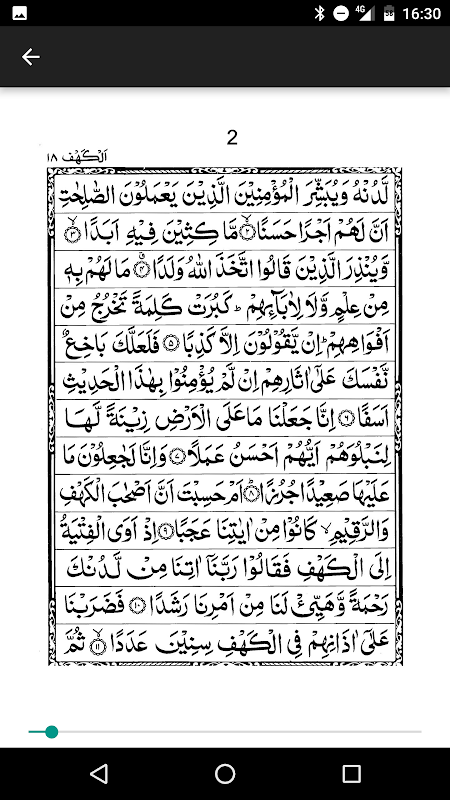 4G
58
16:30
2
اَلۡكَهۡف ١٨
لَّدُنۡهُ وَيُبَشِّرَ الۡمُؤۡمِنِيۡنَ الَّذِيۡنَ يَعۡمَلُوۡنَ الصّٰلِحٰتِ
اَنَّ لَهُمۡ اَجۡرًا حَسَنًا ۙ‏﴿۲﴾ مَّا كِثِيۡنَ فِيۡهِ اَبَدًا ۙ‏﴿۳﴾
وَّيُنۡذِرَ الَّذِيۡنَ قَالُوا اتَّخَذَ اللّٰهُ وَلَدًا‏ ﴿۴﴾ مَا لَهُمۡ بِهٖ
مِنۡ عِلۡمٍ وَّلَا لِاٰبَآٮِٕهِمۡ‌ؕ كَبُرَتۡ كَلِمَةً تَخۡرُجُ مِنۡ
اَفۡوَاهِهِمۡ‌ؕ اِنۡ يَّقُوۡلُوۡنَ اِلَّا كَذِبًا‏ ﴿۵﴾ فَلَعَلَّكَ بَاخِعٌ
نَّفۡسَكَ عَلٰٓى اٰثَارِهِمۡ اِنۡ لَّمۡ يُؤۡمِنُوۡا بِهٰذَا الۡحَدِيۡثِ
اَسَفًا‏ ﴿۶﴾ اِنَّا جَعَلۡنَا مَا عَلَى الۡاَرۡضِ زِيۡنَةً لَّهَا
لِنَبۡلُوَهُمۡ اَيُّهُمۡ اَحۡسَنُ عَمَلًا‏ ﴿۷﴾ وَاِنَّا لَجٰعِلُوۡنَ مَا
عَلَيۡهَا صَعِيۡدًا جُرُزًا ؕ‏﴿۸﴾ اَمۡ حَسِبۡتَ اَنَّ اَصۡحٰبَ الۡكَهۡفِ
وَالرَّقِيۡمِۙ كَانُوۡا مِنۡ اٰيٰتِنَا عَجَبًا‏ ﴿۹﴾ اِذۡ اَوَى الۡفِتۡيَةُ
اِلَى الۡكَهۡفِ فَقَالُوۡا رَبَّنَاۤ اٰتِنَا مِنۡ لَّدُنۡكَ
رَحۡمَةً وَّهَيِّئۡ لَنَا مِنۡ اَمۡرِنَا رَشَدًا‏ ﴿۱۰﴾ فَضَرَبۡنَا
عَلٰٓى اٰذَانِهِمۡ فِى الۡكَهۡفِ سِنِيۡنَ عَدَدًا ۙ‏﴿۱۱﴾ ثُمَّ